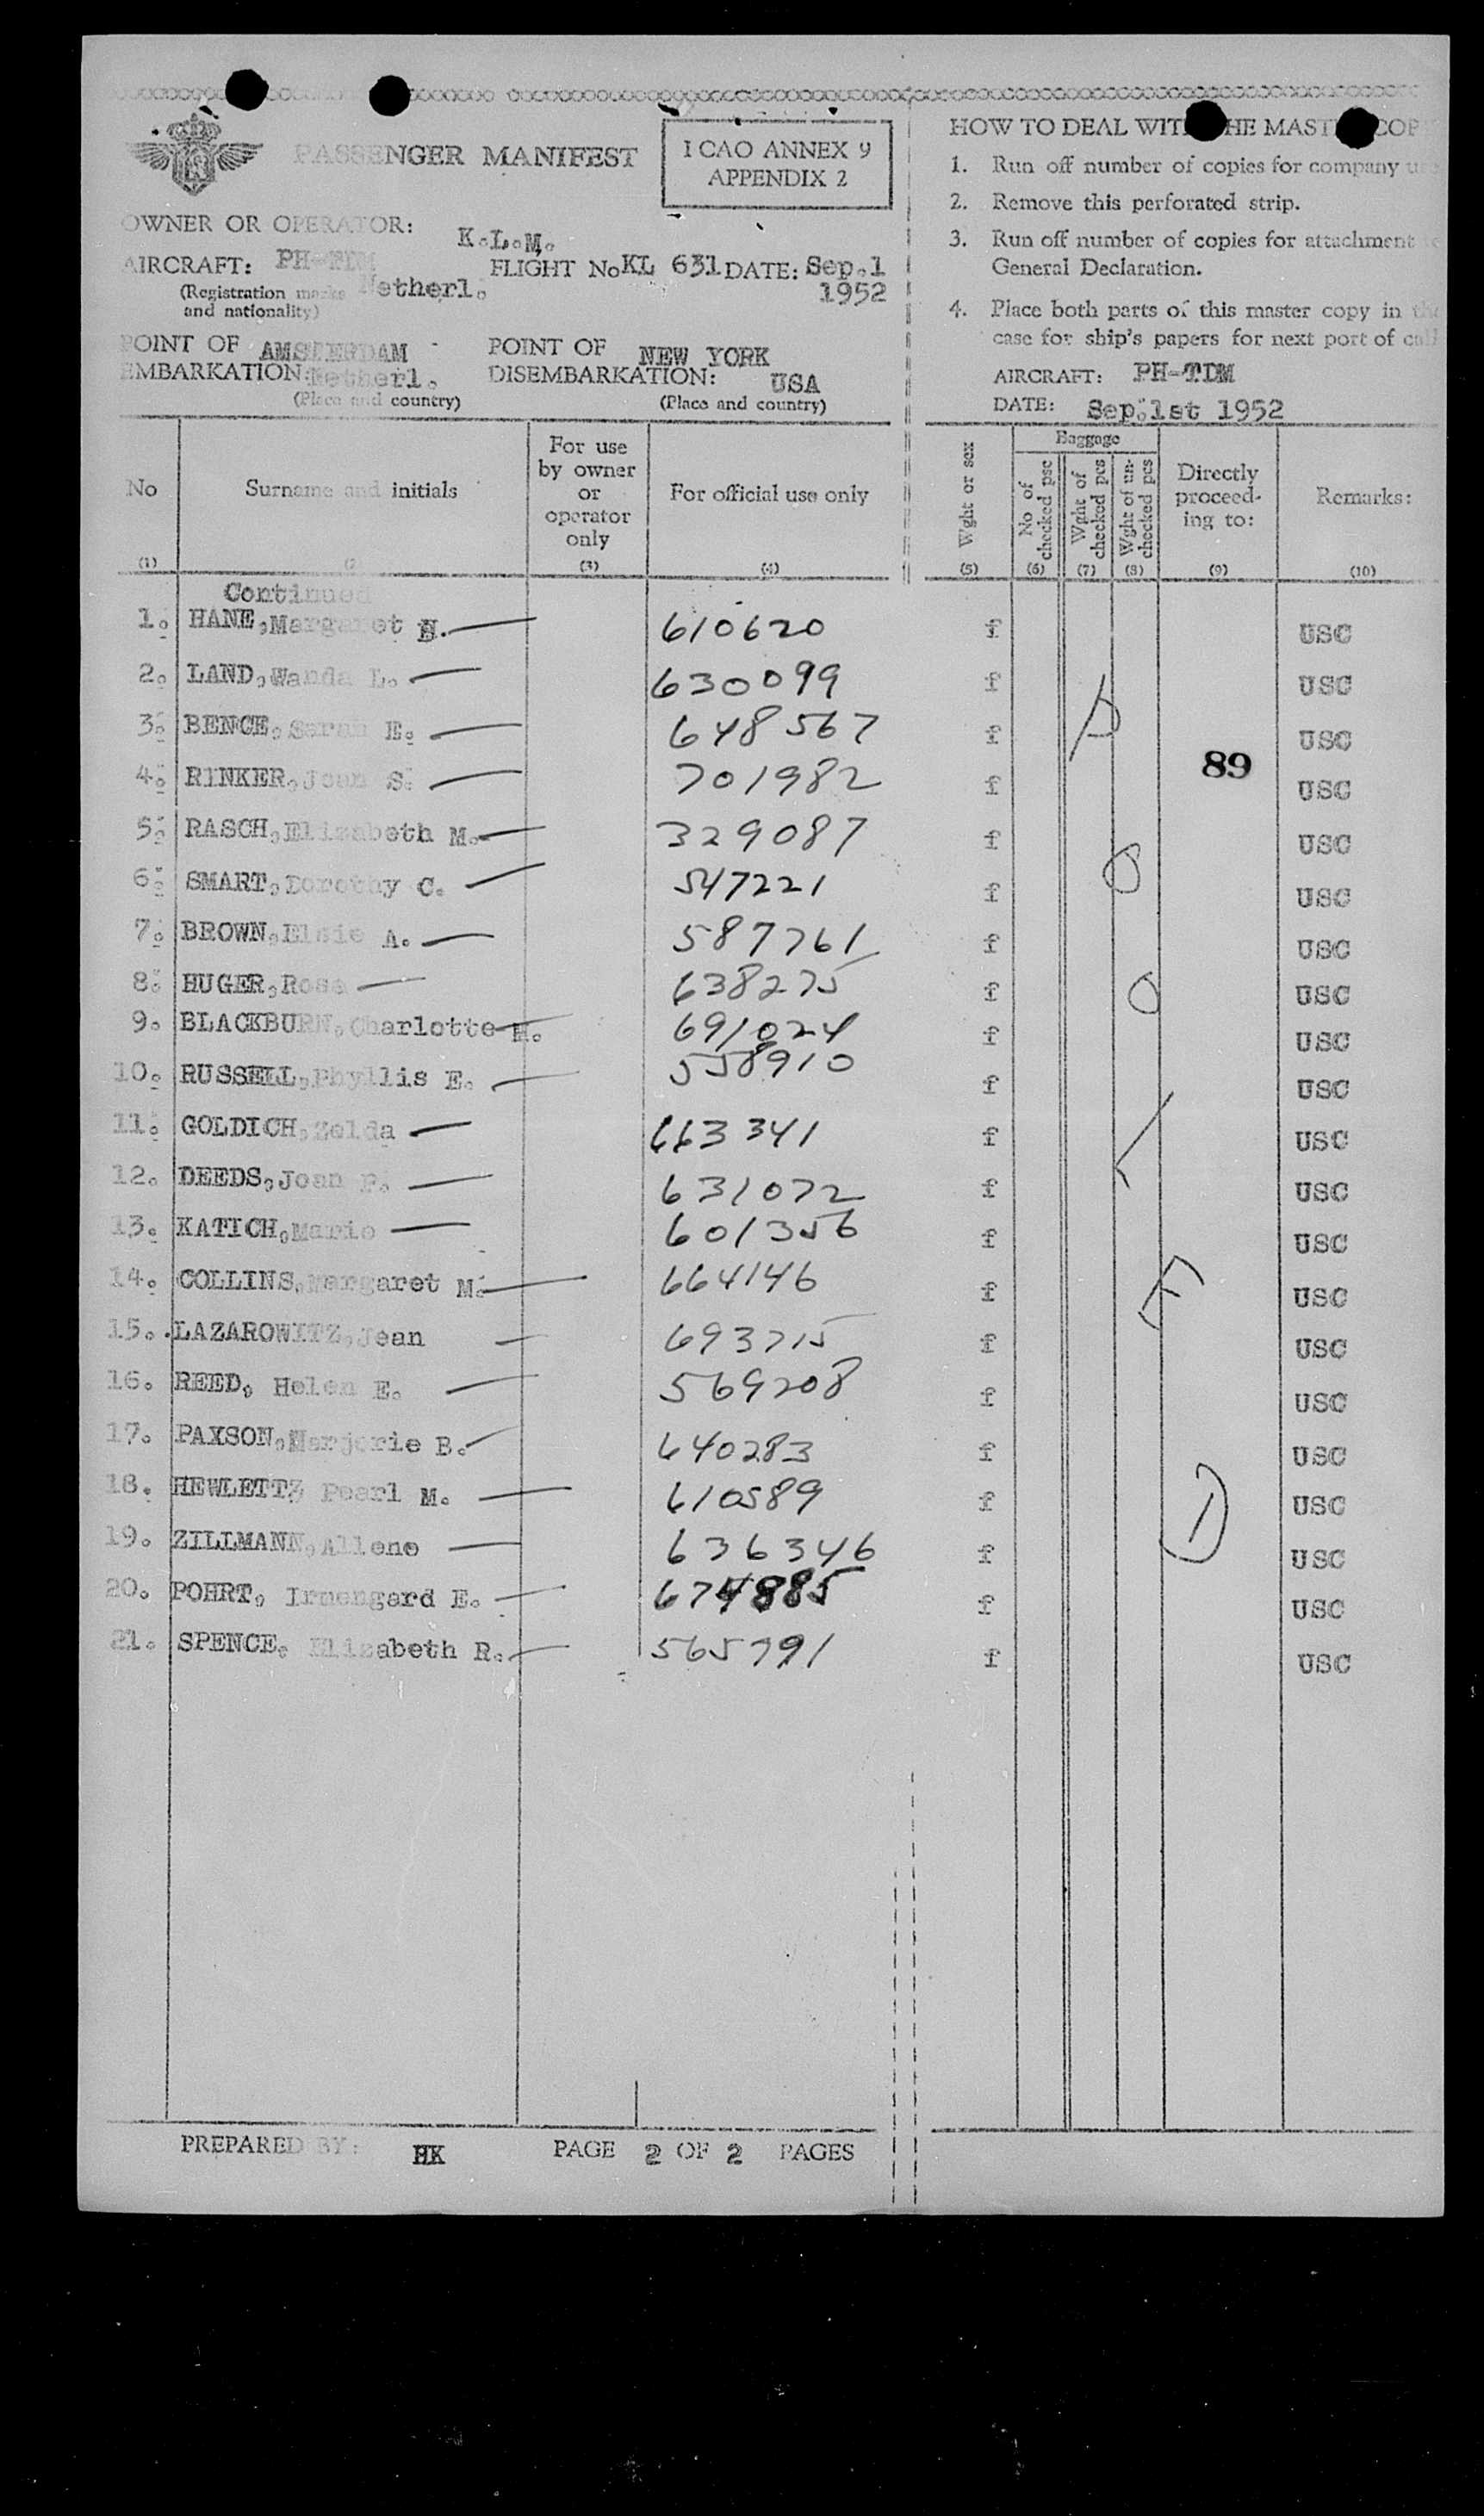 PASSENGER MANIFEST
I CAO ANNEX 9
APPENDIX 2
OWNER OR OPERATOR: K.L.M.
AIRCRAFT: PH-TDM
(Registration marks and nationality) Netherl.
FLIGHT No KL 631 DATE: Sep.1 1952
POINT OF EMBARKATION: AMSTERDAM Netherl.
(Place and country)
POINT OF DISEMBARKATION: NEW YORK USA
(Place and country)
HOW TO DEAL WITH THE MASTER COPY
1. Run off number of copies for company
2. Remove this perforated strip.
3. Run off number of copies for attachment
General Declaration.
4. Place both parts of this master copy in the
case for ship's papers for next port of call
AIRCRAFT: PH-TDM
DATE: Sep.1st 1952
No Surname and initials For use by owner or operator only For official use only Wght or sex Baggage No of checked psc Wght of checked pcs Wght of un-checked pcs Directly proceed-ing to: Remarks:
(1) (2 (3) (4) (5) (6) (7) (8) (9) (10)
Continued
1. HANE, Margaret H. 610620 f USC
2. LAND, Wanda L. 630099 f USC
3. BENCE, Sarah E. 648567 f USC
89
4. RINKER, Joan S. 701982 f USC
5. RASCH, Elizabeth M. 329087 f USC
6. SMART, Dorothy C. 547221 f USC
7. BROWN, Elsie A. 587761 f USC
8. HUGER, Rosa 638275 f USC
9. BLACKBURN, Charlotte H. 691024 f USC
10. RUSSELL, Phyllis E. 558910 f USC
11. GOLDICH, Zelda 663341 f USC
12. DEEDS, Joan F. 631072 f USC
13. KATICH, Marie 601356 f USC
14. COLLINS, Margaret M. 664146 f USC
15. LAZAROWITZ, Jean 693715 f USC
16. REED, Helen E. 569208 f USC
17. PAXSON, Marjorie B. 640283 f USC
18. HEWLETT, Pearl M. 610589 f USC
19. ZILLMANN, Allene 636346 f USC
20. POHRT, Irmengard E. 674885 f USC
21. SPENCE, Elizabeth R. 565791 f USC
PREPARED BY: HK PAGE 2 OF 2 PAGES